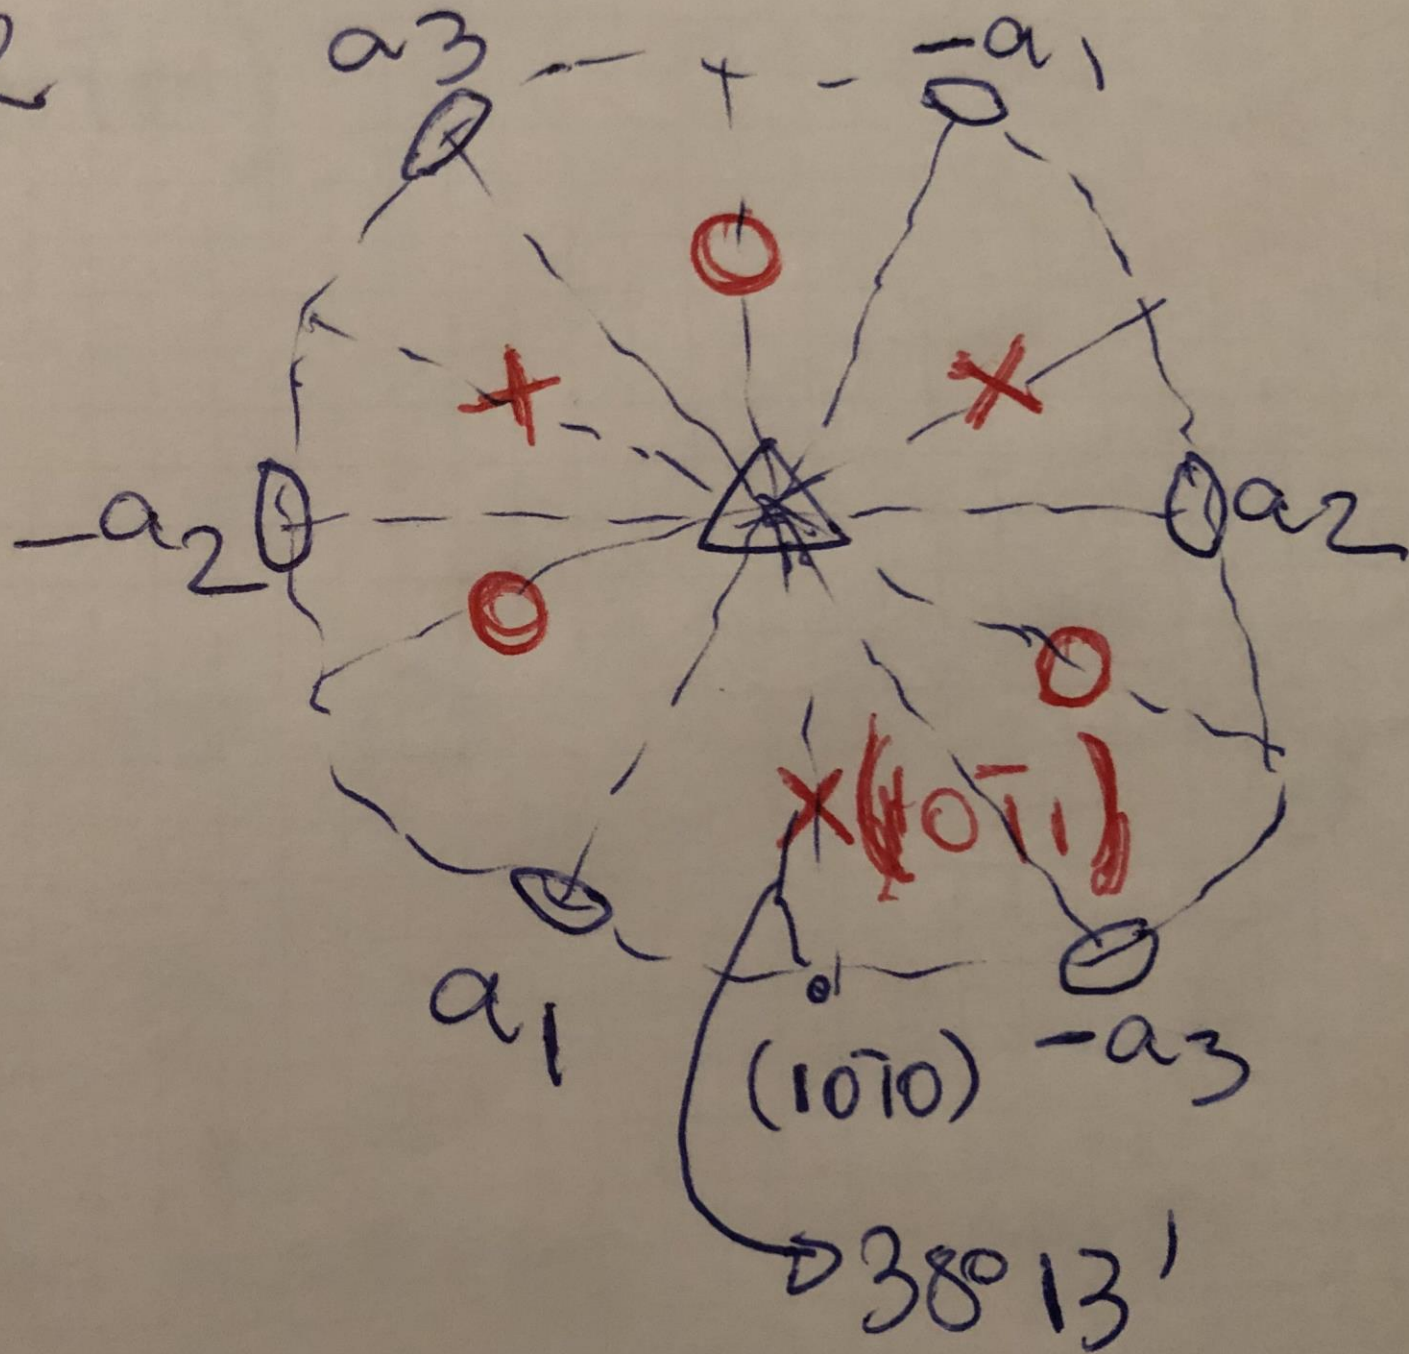 2
a3 -a1
-a2 a2
(10̄11)
a1 (10̄10) -a3
38° 13'